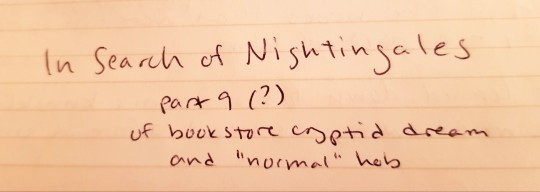 In Search of Nightingales
part 9 (?)
of bookstore cryptid dream
and "normal" hob